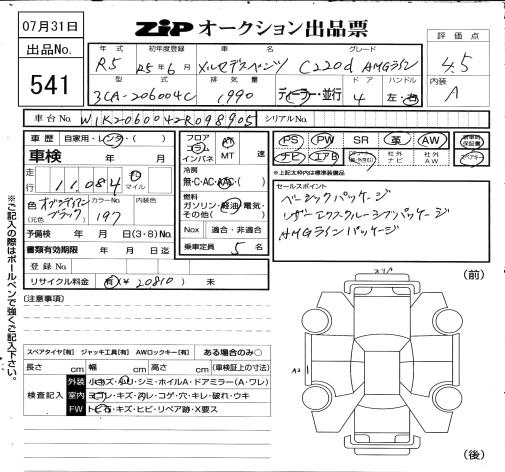 07月31日
ZiP オークション出品票
出品No.
541
年式 初年度登録 車名 グレード
R5 R5年6月 メルセデスベンツ C220d AMGライン
型式 排気量 ドア ハンドル
3CA-206004C 1990 ディーラー・並行 4 左・右
評価点
4.5
内装
A
車台No. W1K2060042R098905 シリアルNo.
車歴 自家用・レンタ・( )
車検 年 月
走行 11,084 km マイル
色 オブシディアンブラック カラーNo. 197
(元色)
予備検 年 月 日(3・8)No.
書類有効期限 年 月 日
登録No.
リサイクル料金 有(¥20810) 未
フロア コラム インパネ AT MT 速
冷房
無・C・AC・AAC・( )
燃料
ガソリン・軽油・電気・その他( )
Nox 適合・非適合
乗車定員 5 名
PS PW SR 革 AW 新車時保証書
ナビ エアB 社外ナビ 社外AW スペアキー
※上記太枠内は純正装備のみ
セールスポイント
ベーシックパッケージ
レザーエクスクルーシブパッケージ
AMGラインパッケージ
※ご記入の際はボールペンで強くご記入下さい。
(注意事項)
スペアタイヤ[有] ジャッキ工具[有] AWロックキー[有] ある場合のみ○
長さ cm 幅 cm 高さ cm (車検証上の寸法)
検査記入
外装 小キズ・凹・シミ・ホイルA・ドアミラー(A・ワレ)
室内 ヨゴレ・キズ・スレ・コゲ・穴・キレ・破れ・ウキ
FW トビ石・キズ・ヒビ・リペア跡・X要ス
(前)
A2
(後)